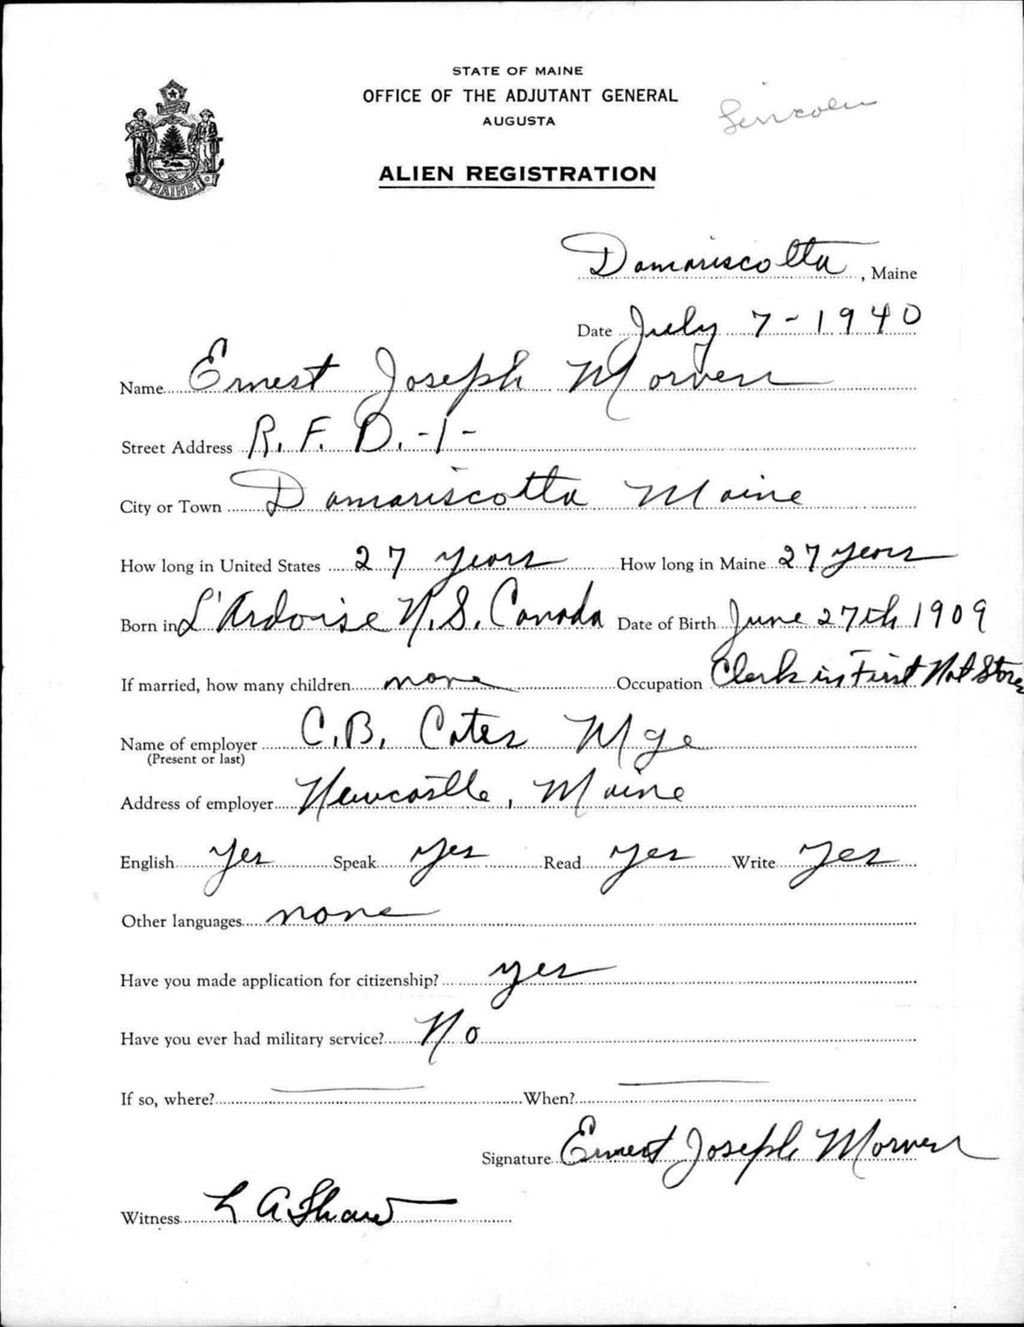 STATE OF MAINE
OFFICE OF THE ADJUTANT GENERAL
AUGUSTA
Lincoln
ALIEN REGISTRATION
MAINE
Damariscotta, Maine
Date July 7-1940
Name Ernest Joseph Morven
Street Address R.F.D.-1-
City or Town Damariscotta Maine
How long in United States 27 years How long in Maine 27 years
Born in L'Ardoise N.S. Canada Date of Birth June 27th 1909
If married, how many children none Occupation Clerk in First Nat Stores
Name of employer C.B. Cates Mge
(Present or last)
Address of employer Newcastle, Maine
English Yes Speak Yes Read Yes Write Yes
Other languages none
Have you made application for citizenship? yes
Have you ever had military service? No
If so, where? When?
Signature Ernest Joseph Morven
Witness L A Shaw